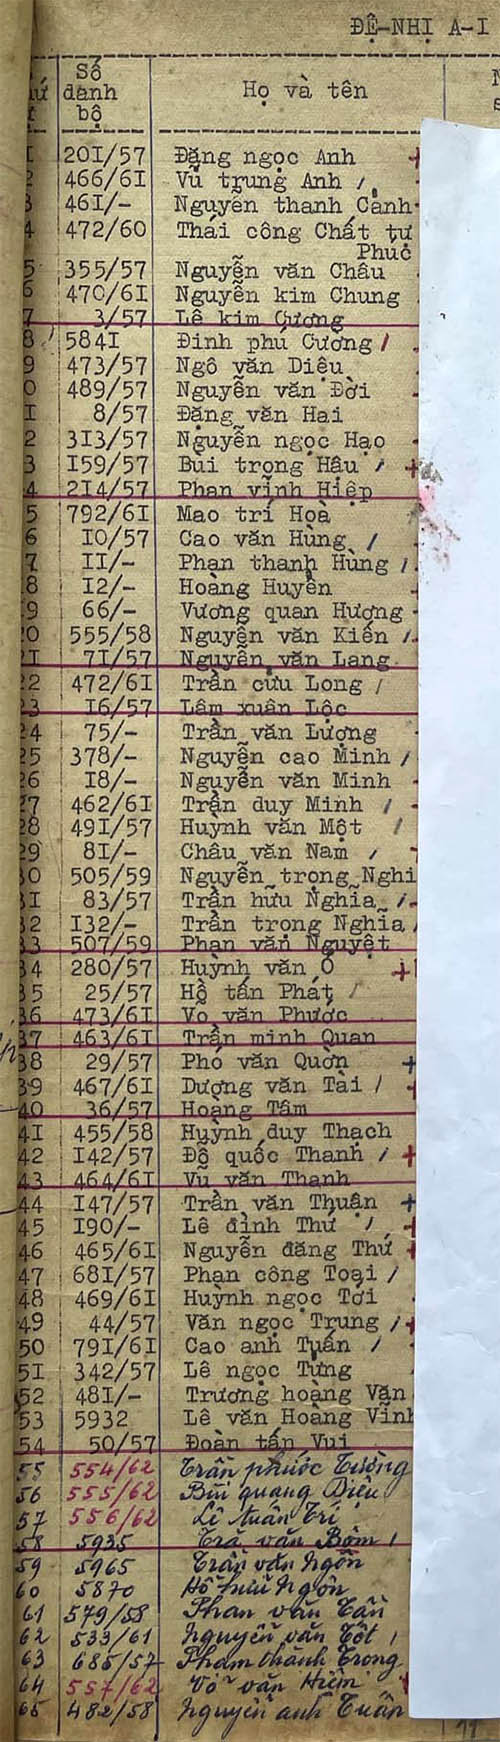 ĐỆ-NHỊ A-I
Số
danh
bộ
Họ và tên
I 20I/57 Đặng ngọc Anh
2 466/6I Vũ trung Anh
3 46I/- Nguyễn thanh Cảnh
4 472/60 Thái công Chất tự
Phuc
5 355/57 Nguyễn văn Châu
6 470/6I Nguyễn kim Chung
7 3/57 Lê kim Cương
8 584I Đinh phú Cương
9 473/57 Ngô văn Diêu
0 489/57 Nguyễn văn Đời
I 8/57 Đặng văn Hai
2 3I3/57 Nguyễn ngọc Hạo
3 I59/57 Bùi trọng Hậu
4 2I4/57 Phan vĩnh Hiệp
5 792/6I Mao trí Hoà
6 I0/57 Cao văn Hùng
7 II/- Phan thanh Hùng
8 I2/- Hoàng Huyền
9 66/- Vương quan Hương
20 555/58 Nguyễn văn Kiến
2I 7I/57 Nguyễn văn Lang
22 472/6I Trần cửu Long
23 I6/57 Lâm xuân Lộc
24 75/- Trần văn Lượng
25 378/- Nguyễn cao Minh
26 I8/- Nguyễn văn Minh
27 462/6I Trần duy Minh
28 49I/57 Huỳnh văn Một
29 8I/- Châu văn Nam
30 505/59 Nguyễn trọng Nghi
3I 83/57 Trần hữu Nghĩa
32 I32/- Trần trong Nghĩa
33 507/59 Phan văn Nguyệt
34 280/57 Huỳnh văn Ô
35 25/57 Hồ tấn Phát
36 473/6I Vo văn Phước
37 463/6I Trần minh Quan
38 29/57 Phó văn Quờn
39 467/6I Dương văn Tài
40 36/57 Hoàng Tâm
4I 455/58 Huỳnh duy Thạch
42 I42/57 Đỗ quốc Thanh
43 464/6I Vũ văn Thanh
44 I47/57 Trần văn Thuận
45 I90/- Lê đình Thư
46 465/6I Nguyễn đăng Thư
47 68I/57 Phan công Toại
48 469/6I Huỳnh ngọc Tới
49 44/57 Văn ngọc Trung
50 79I/6I Cao anh Tuấn
5I 342/57 Lê ngọc Tưng
52 48I/- Trương hoàng Văn
53 5932 Lê văn Hoàng Vĩnh
54 50/57 Đoàn tấn Vui
55 554/62 Trần phước Tường
56 555/62 Bùi quang Diệu
57 556/62 Lê tuấn Trí
58 5935 Trà văn Bôm
59 5965 Trần văn Ngôn
60 5870 Hồ hữu Ngôn
61 579/58 Phan văn Tấn
62 533/61 Nguyễn văn Tốt
63 685/57 Pham thành Trong
64 557/62 Võ văn Hiêm
65 482/58 Nguyễn anh Tuấn
11